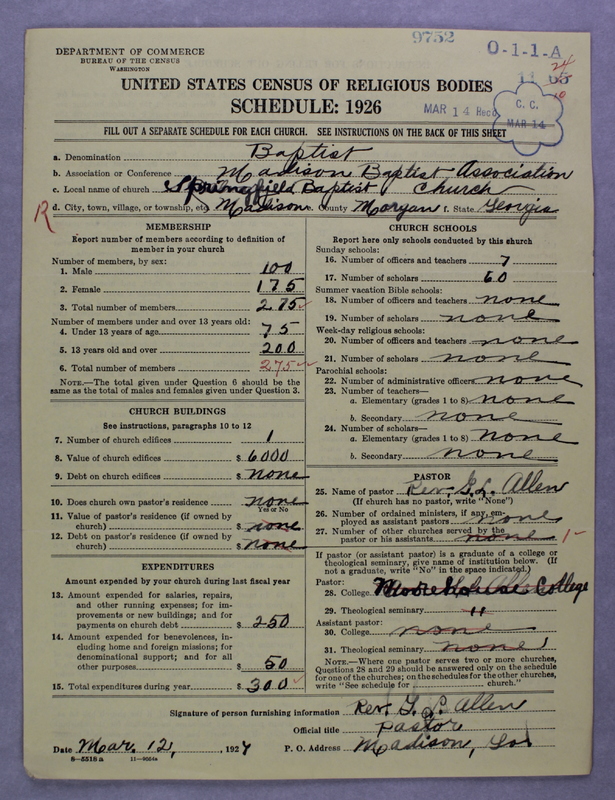 9752
O-1-1-A
DEPARTMENT OF COMMERCE
BUREAU OF THE CENSUS
WASHINGTON
24
UNITED STATES CENSUS OF RELIGIOUS BODIES
SCHEDULE: 1926
MAR 14 Recd
C. C.
MAR 14
FILL OUT A SEPARATE SCHEDULE FOR EACH CHURCH. SEE INSTRUCTIONS ON THE BACK OF THIS SHEET
a. Denomination Baptist
b. Association or Conference Madison Baptist Association
c. Local name of church Springfield Baptist Church
R d. City, town, village, or township, etc. Madison e. County Morgan f. State Georgia
MEMBERSHIP
Report number of members according to definition of
member in your church
Number of members, by sex:
1. Male 100
2. Female 175
3. Total number of members 275
Number of members under and over 13 years old:
4. Under 13 years of age 75
5. 13 years old and over 200
6. Total number of members 275
NOTE.—The total given under Question 6 should be the
same as the total of males and females given under Question 3.
CHURCH BUILDINGS
See instructions, paragraphs 10 to 12
7. Number of church edifices 1
8. Value of church edifices $ 6000
9. Debt on church edifices $ none
10. Does church own pastor's residence none
Yes or No
11. Value of pastor's residence (if owned by
church) $ none
12. Debt on pastor's residence (if owned by
church) $ none
EXPENDITURES
Amount expended by your church during last fiscal year
13. Amount expended for salaries, repairs,
and other running expenses; for im-
provements or new buildings; and for
payments on church debt $ 250
14. Amount expended for benevolences, in-
cluding home and foreign missions; for
denominational support; and for all
other purposes $ 50
15. Total expenditures during year $ 300
CHURCH SCHOOLS
Report here only schools conducted by this church
Sunday schools:
16. Number of officers and teachers 7
17. Number of scholars 60
Summer vacation Bible schools:
18. Number of officers and teachers none
19. Number of scholars none
Week-day religious schools:
20. Number of officers and teachers none
21. Number of scholars none
Parochial schools:
22. Number of administrative officers none
23. Number of teachers—
a. Elementary (grades 1 to 8) none
b. Secondary none
24. Number of scholars—
a. Elementary (grades 1 to 8) none
b. Secondary none
PASTOR
25. Name of pastor Rev. G. L. Allen
(If church has no pastor, write "None")
26. Number of ordained ministers, if any, em-
ployed as assistant pastors none
27. Number of other churches served by the
pastor or his assistants none 1-
If pastor (or assistant pastor) is a graduate of a college or
theological seminary, give name of institution below. (If
not a graduate, write "No" in the space indicated.)
Pastor:
28. College College
29. Theological seminary "
Assistant pastor:
30. College none
31. Theological seminary none
NOTE.—Where one pastor serves two or more churches,
Questions 28 and 29 should be answered only on the schedule
for one of the churches; on the schedules for the other churches,
write "See schedule for church."
Signature of person furnishing information Rev. G. L. Allen
Official title pastor
Date Mar. 12, 1927 P. O. Address Madison, Ga
8—5518 a 11—9554a